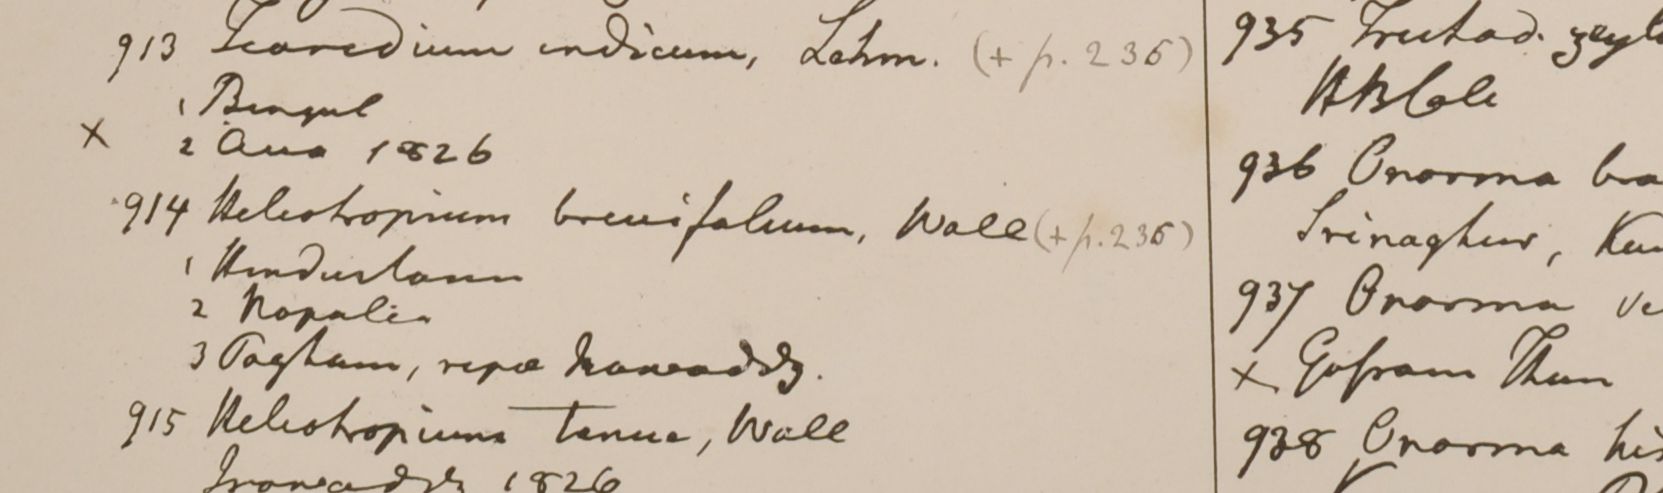 913 Tiaredium indicum, Lehm. (+ p. 236)
1 Bengal
× 2 Ava 1826
914 Heliotropium brevifolium, Wall (+ p. 236)
1 Hindustan
2 Napalia
3 Pagham, ripæ Irawaddy.
915 Heliotropium tenue, Wall
Irowaddy 1826
935 Trichod. zeyl
HBCale
936 Onosma bra
Srinaghur, Kam
937 Onosma
× Gossam Than
938 Onosma his